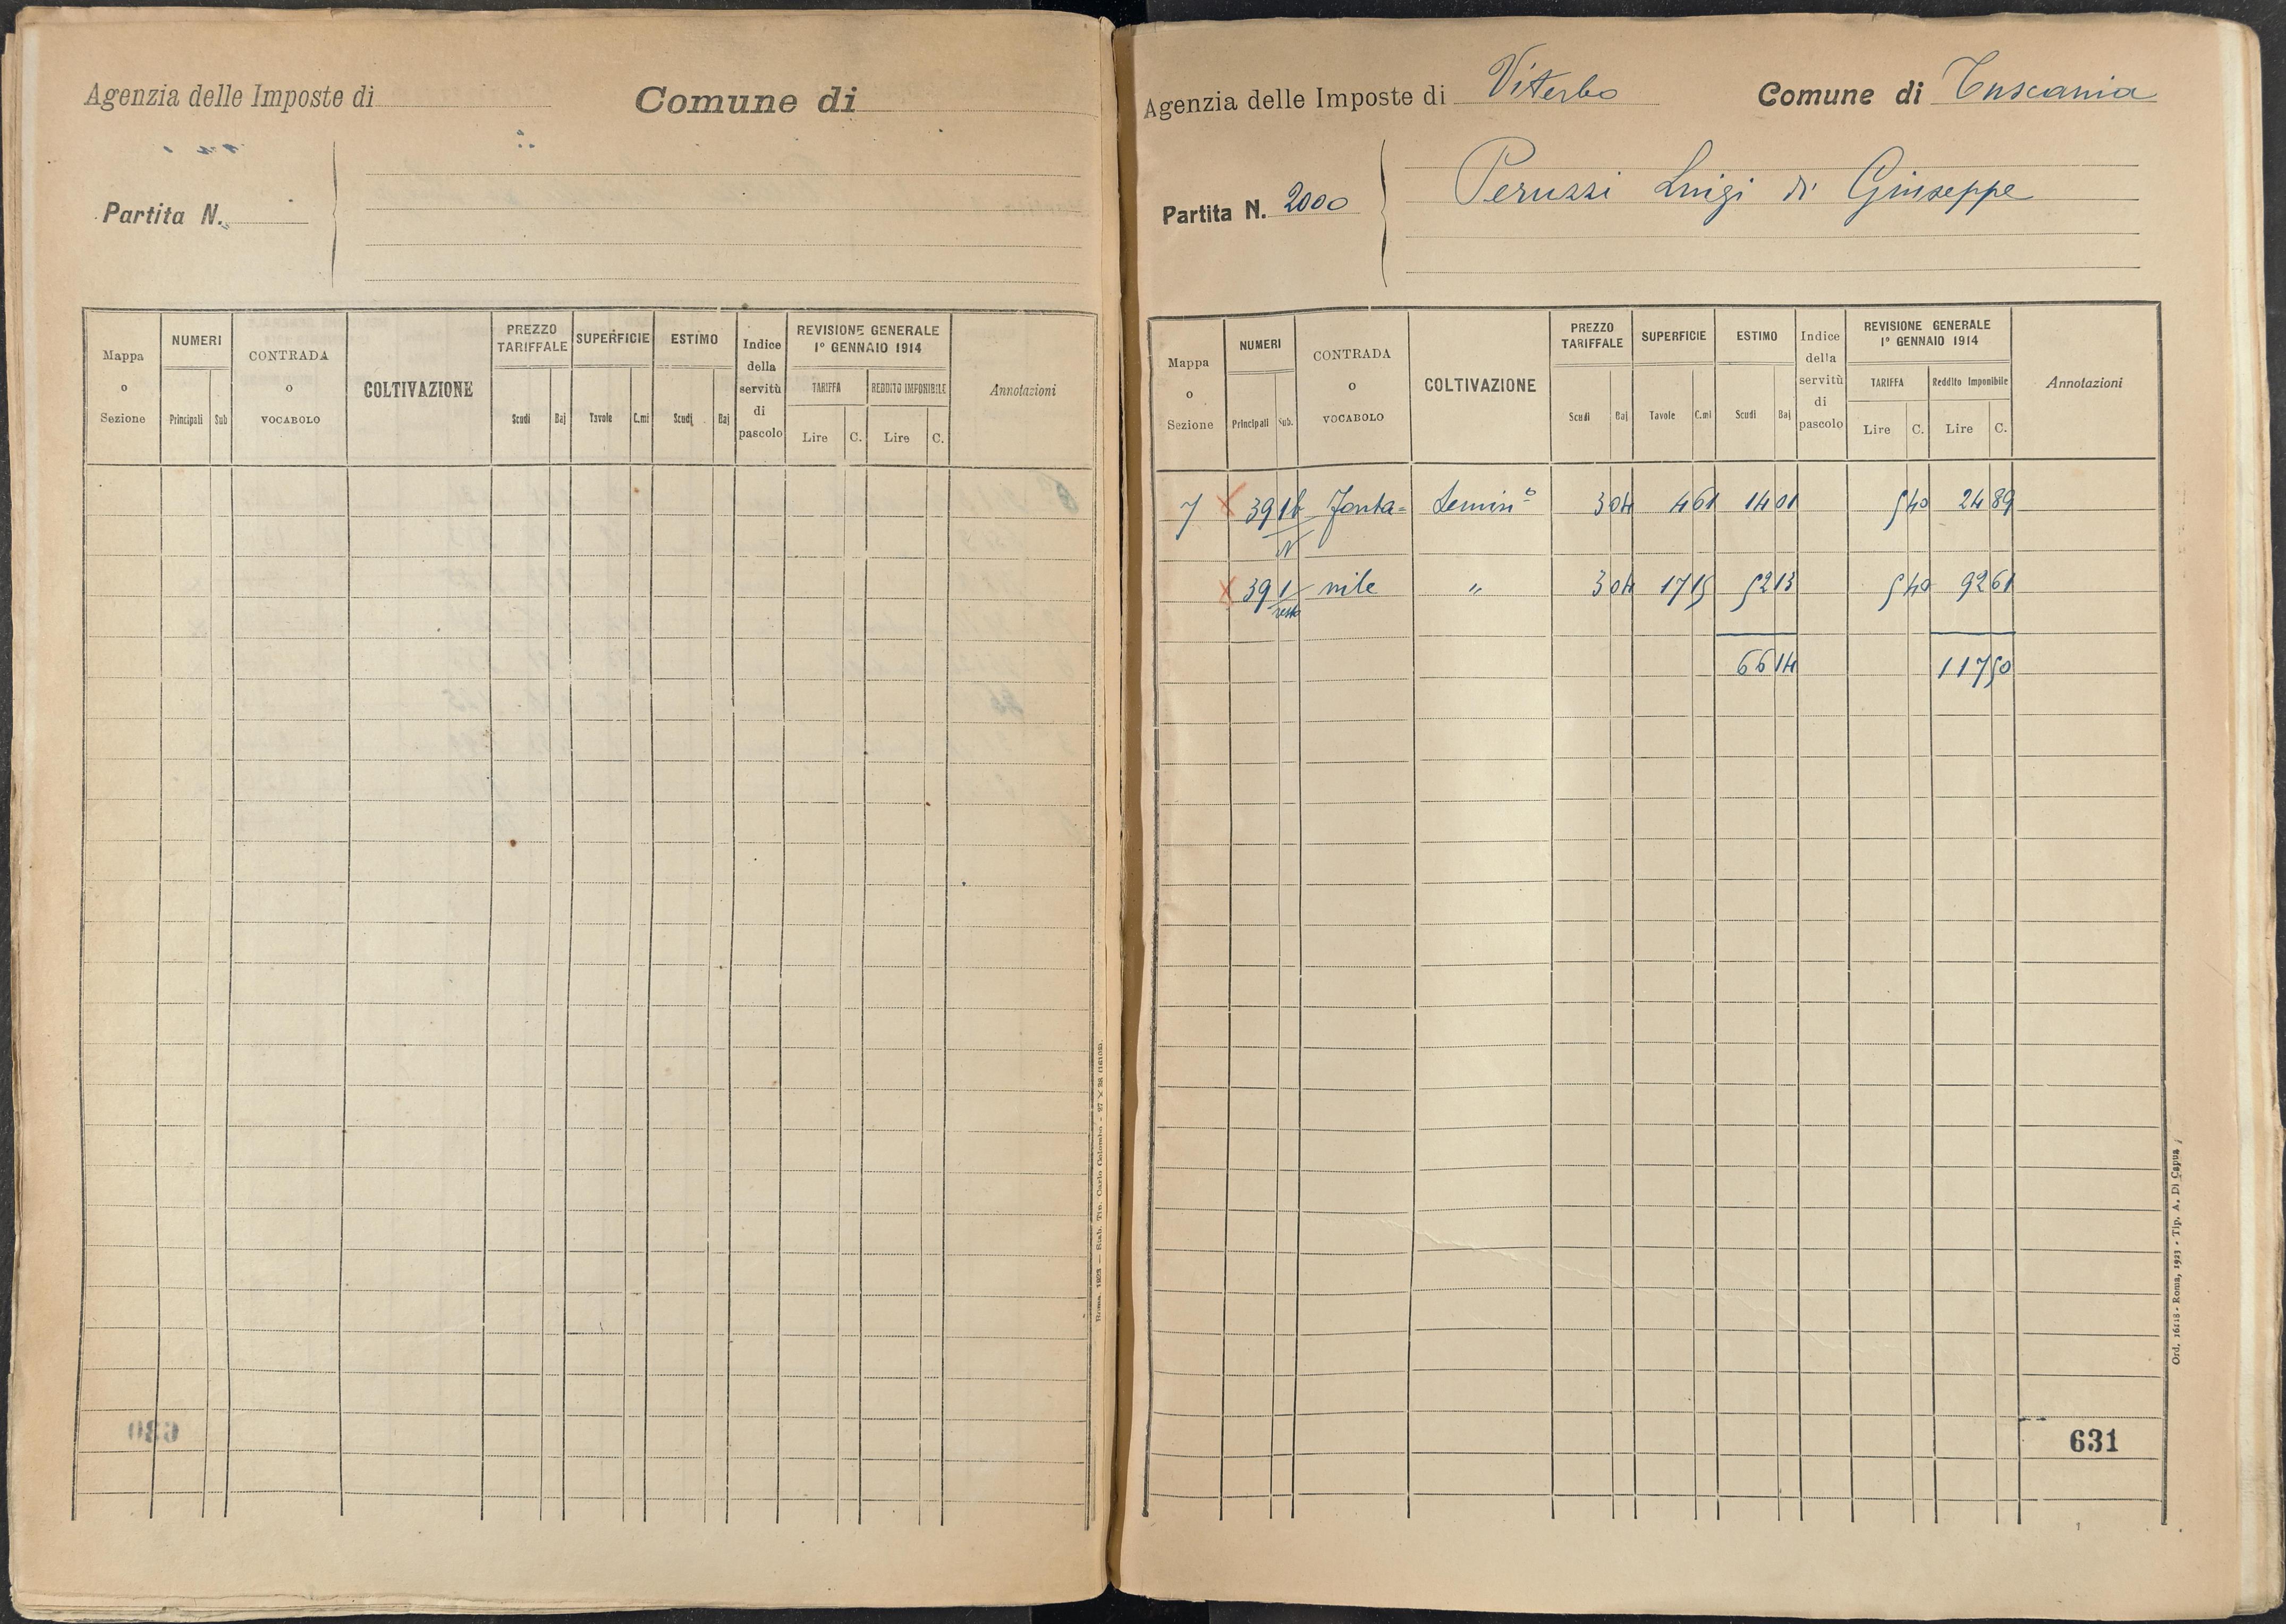 Agenzia delle Imposte di Comune di
Partita N.
Mappa o Sezione NUMERI Principali Sub CONTRADA o VOCABOLO COLTIVAZIONE PREZZO TARIFFALE Scudi Baj SUPERFICIE Tavole C.mi ESTIMO Scudi Baj Indice della servitù di pascolo REVISIONE GENERALE 1° GENNAIO 1914 TARIFFA Lire C. REDDITO IMPONIBILE Lire C. Annotazioni
630
Roma, 1923 — Stab. Tip. Carlo Colombo - 27 X 28 (16108).
Agenzia delle Imposte di Viterbo Comune di Tuscania
Partita N. 2000 Peruzzi Luigi di Giuseppe
Mappa o Sezione NUMERI Principali Sub. CONTRADA o VOCABOLO COLTIVAZIONE PREZZO TARIFFALE Scudi Baj SUPERFICIE Tavole C.mi ESTIMO Scudi Baj Indice della servitù di pascolo REVISIONE GENERALE 1° GENNAIO 1914 TARIFFA Lire C. Reddito Imponibile Lire C. Annotazioni
7 X 391 Fonta= Semin° 3 04 4 61 14 01 5 40 24 89
X 391 resto nile " 3 04 17 15 52 13 5 40 92 61
66 14 117 50
631
Ord. 16118 - Roma, 1923 - Tip. A. Di Capua